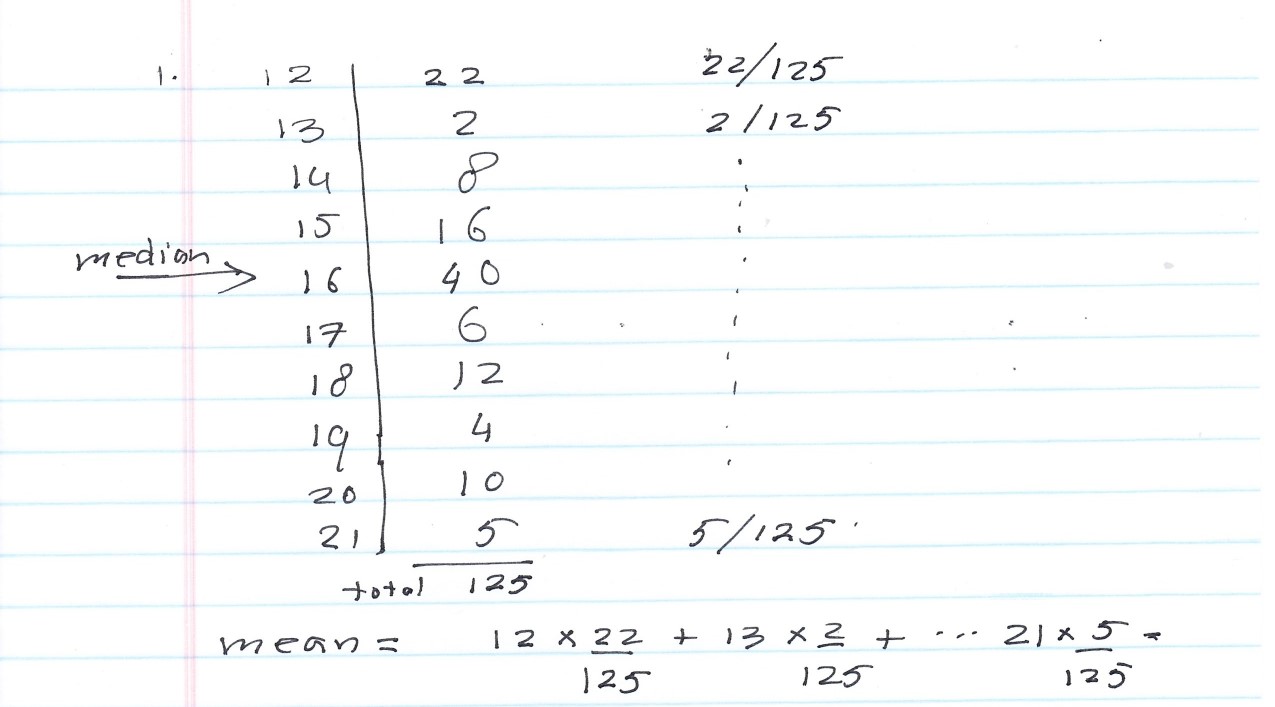 1. 12 22 22/125
13 2 2/125
14 8
15 16
median → 16 40
17 6
18 12
19 4
20 10
21 5 5/125
total 125
mean = 12 × 22/125 + 13 × 2/125 + ... 21 × 5/125 =